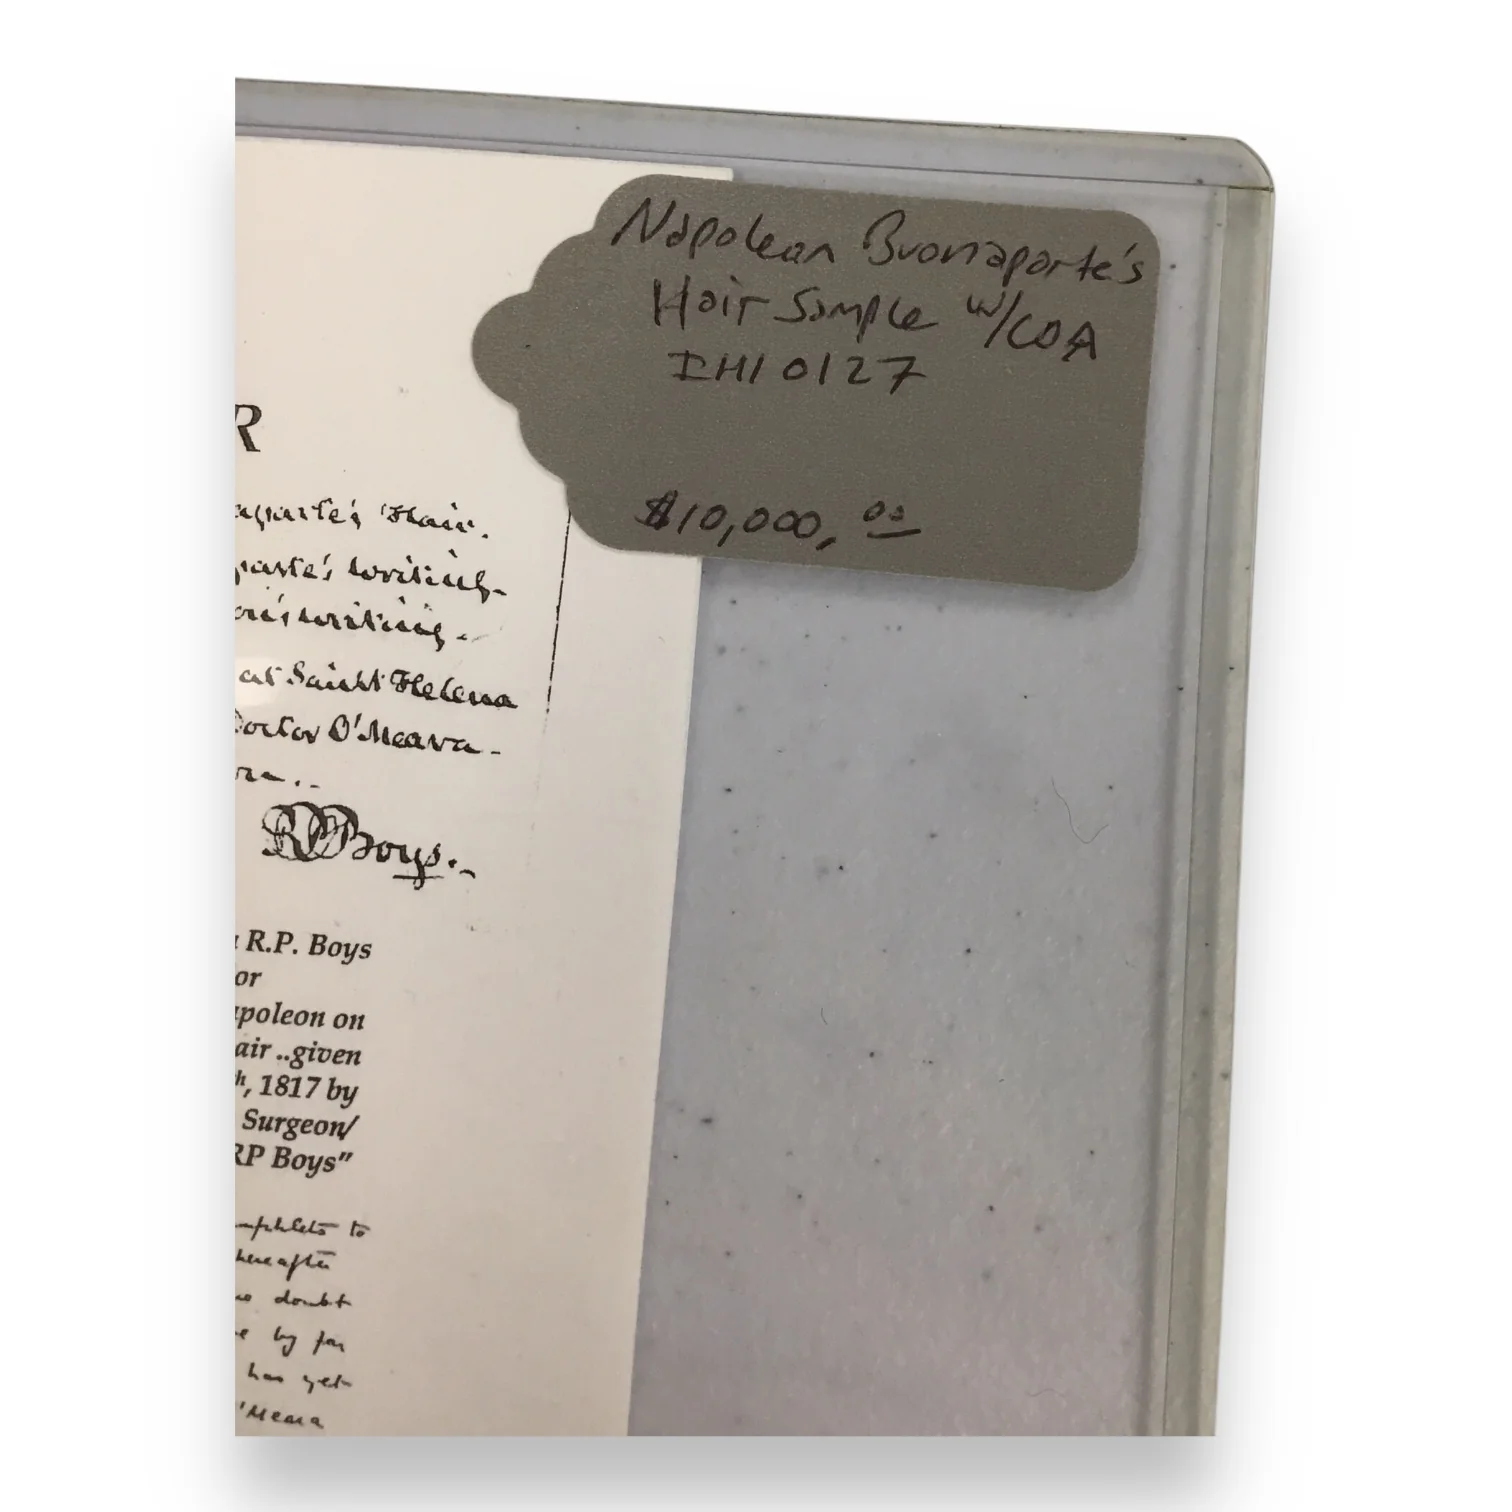 Napolean Buonaparte's
Hair Sample w/COA
IHI 0127
$10,000.00
R
aparte's Hair.
parte's writing-
on's writing-
at Saint Helena
Doctor O'Meara-
RPBoys.
R.P. Boys
or
apoleon on
air ..given
h, 1817 by
Surgeon/
RP Boys"
to
hereafter
no doubt
by far
has yet
O'Meara